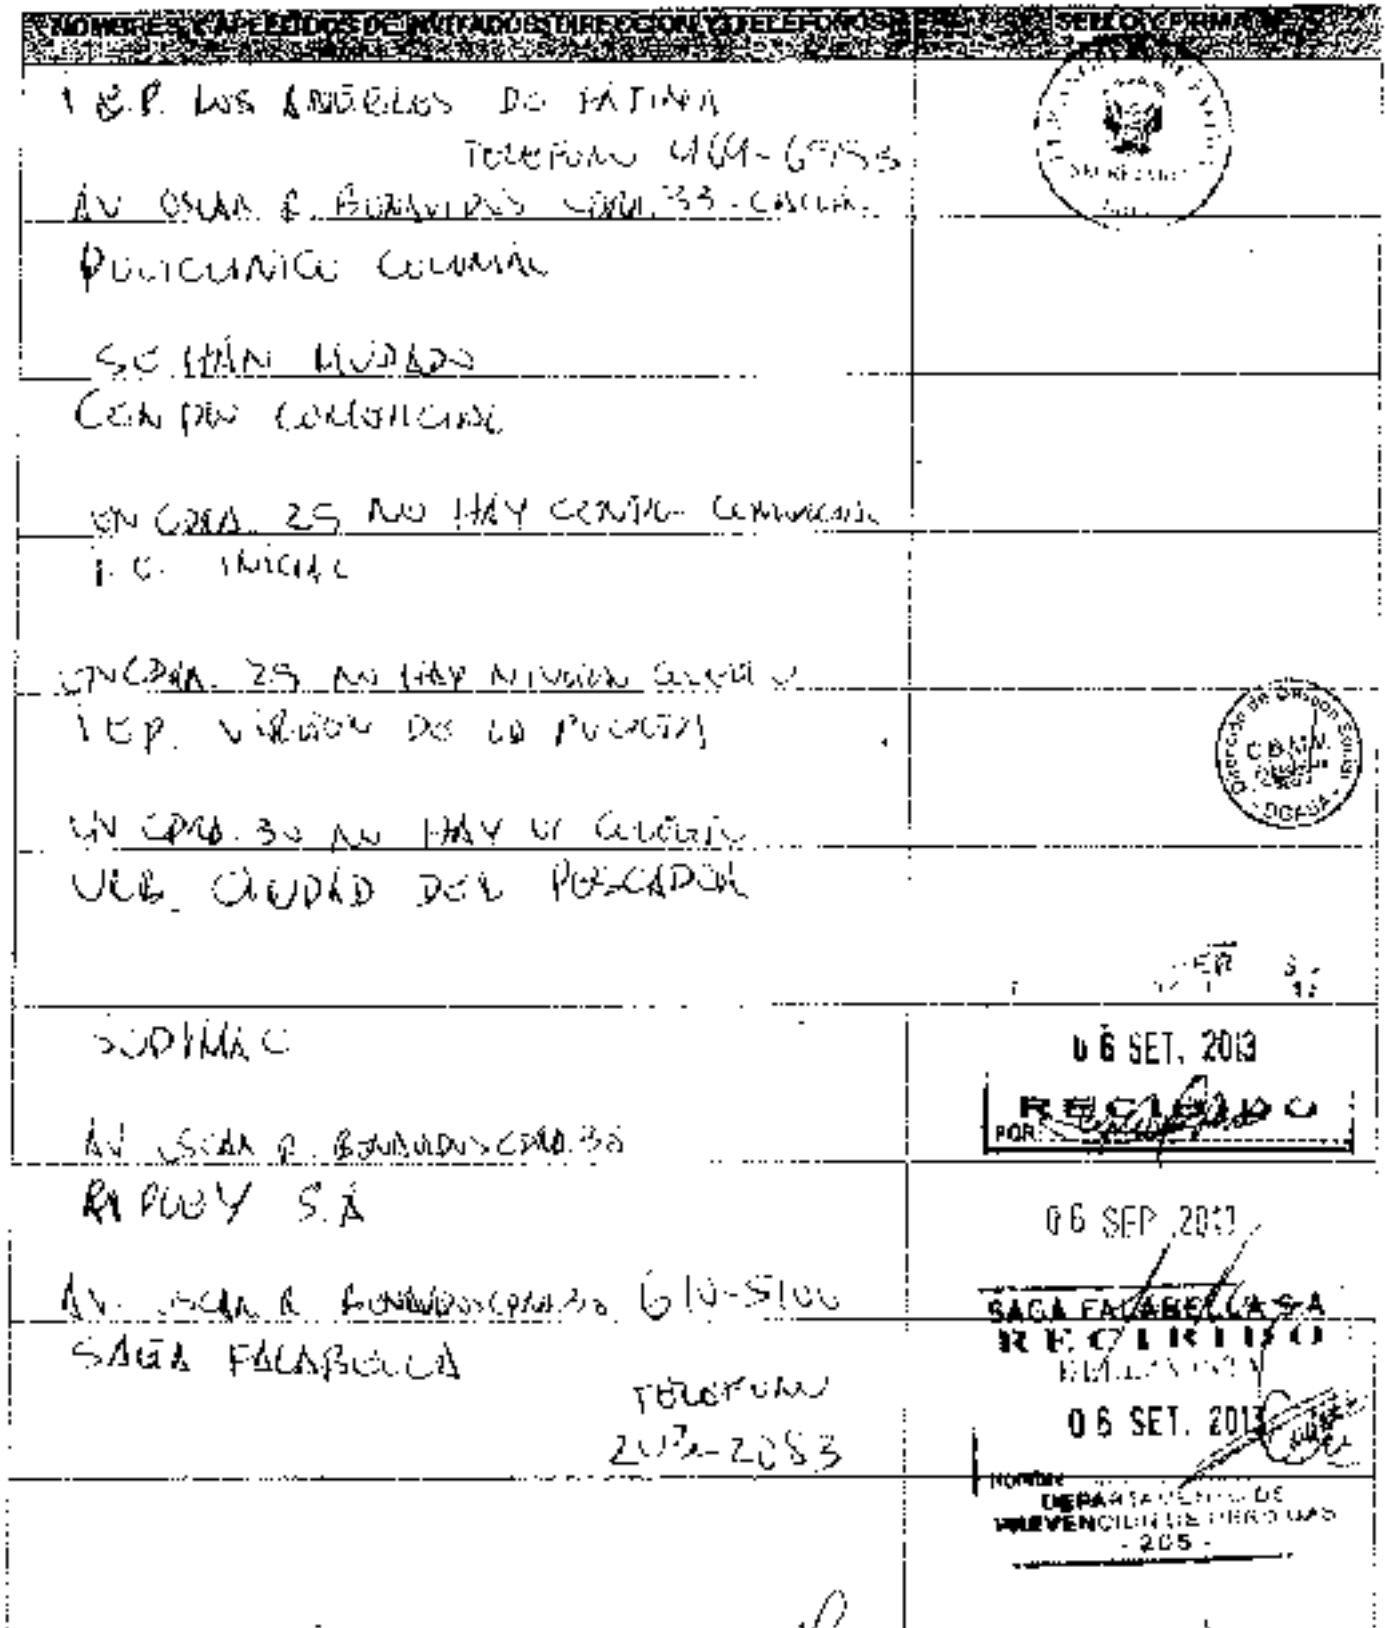 NOMBRES Y APELLIDOS DE INVITADOS DIRECCION Y TELEFONOS SELLO Y FIRMA
I E.P. LOS ANGELES DE FATIMA
TELEFONO 464-6
AV OSCAR R. BENAVIDES CDRA. 33 - CALLAO
POLICLINICO COLONIAL
SE HAN MUDADO
COMERCIAL
EN CDRA. 25 NO HAY CENTRO COMERCIAL
I. E. INICIAL
EN CDRA. 25 NO HAY NINGUN COLEGIO
I E P. VIRGEN DE LA PUERTA
EN CDRA. 30 NO HAY COLEGIO
Dirección de Gestión Social
DGFSA
URB. CIUDAD DEL PESCADOR
SODIMAC
06 SET. 2013
RECIBIDO
POR:
AV OSCAR R. BENAVIDES CDRA. 30
RIPLEY S.A
06 SEP 2013
AV. OSCAR R BENAVIDES CDRA 30 610-5100
SAGA FALABELLA S.A
RECIBIDO
SAGA FALABELLA
TELEFONO
203-2053
06 SET. 2013
NOMBRE
DEPARTAMENTO DE
PREVENCION DE PERDIDAS
- 205 -